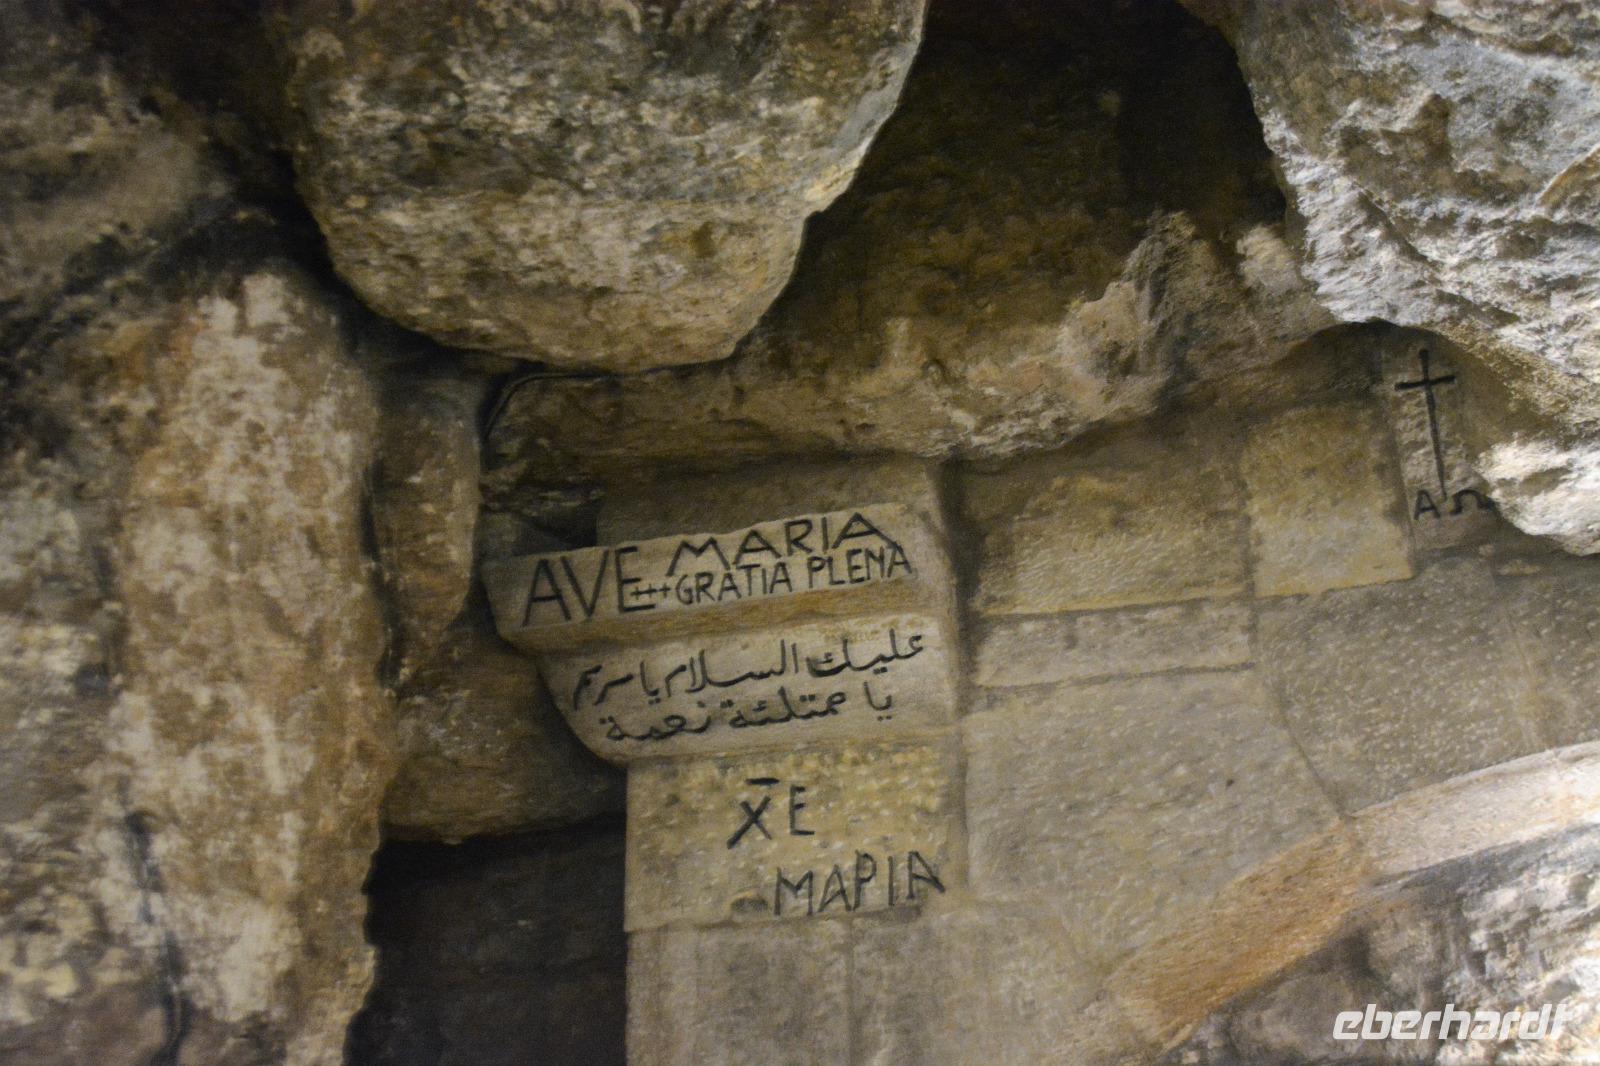 AVE MARIA
+++ GRATIA PLENA
عليك السلام يا مريم
يا ممتلئة نعمة
X̅E
MAPIA
Α Ω
eberhardt